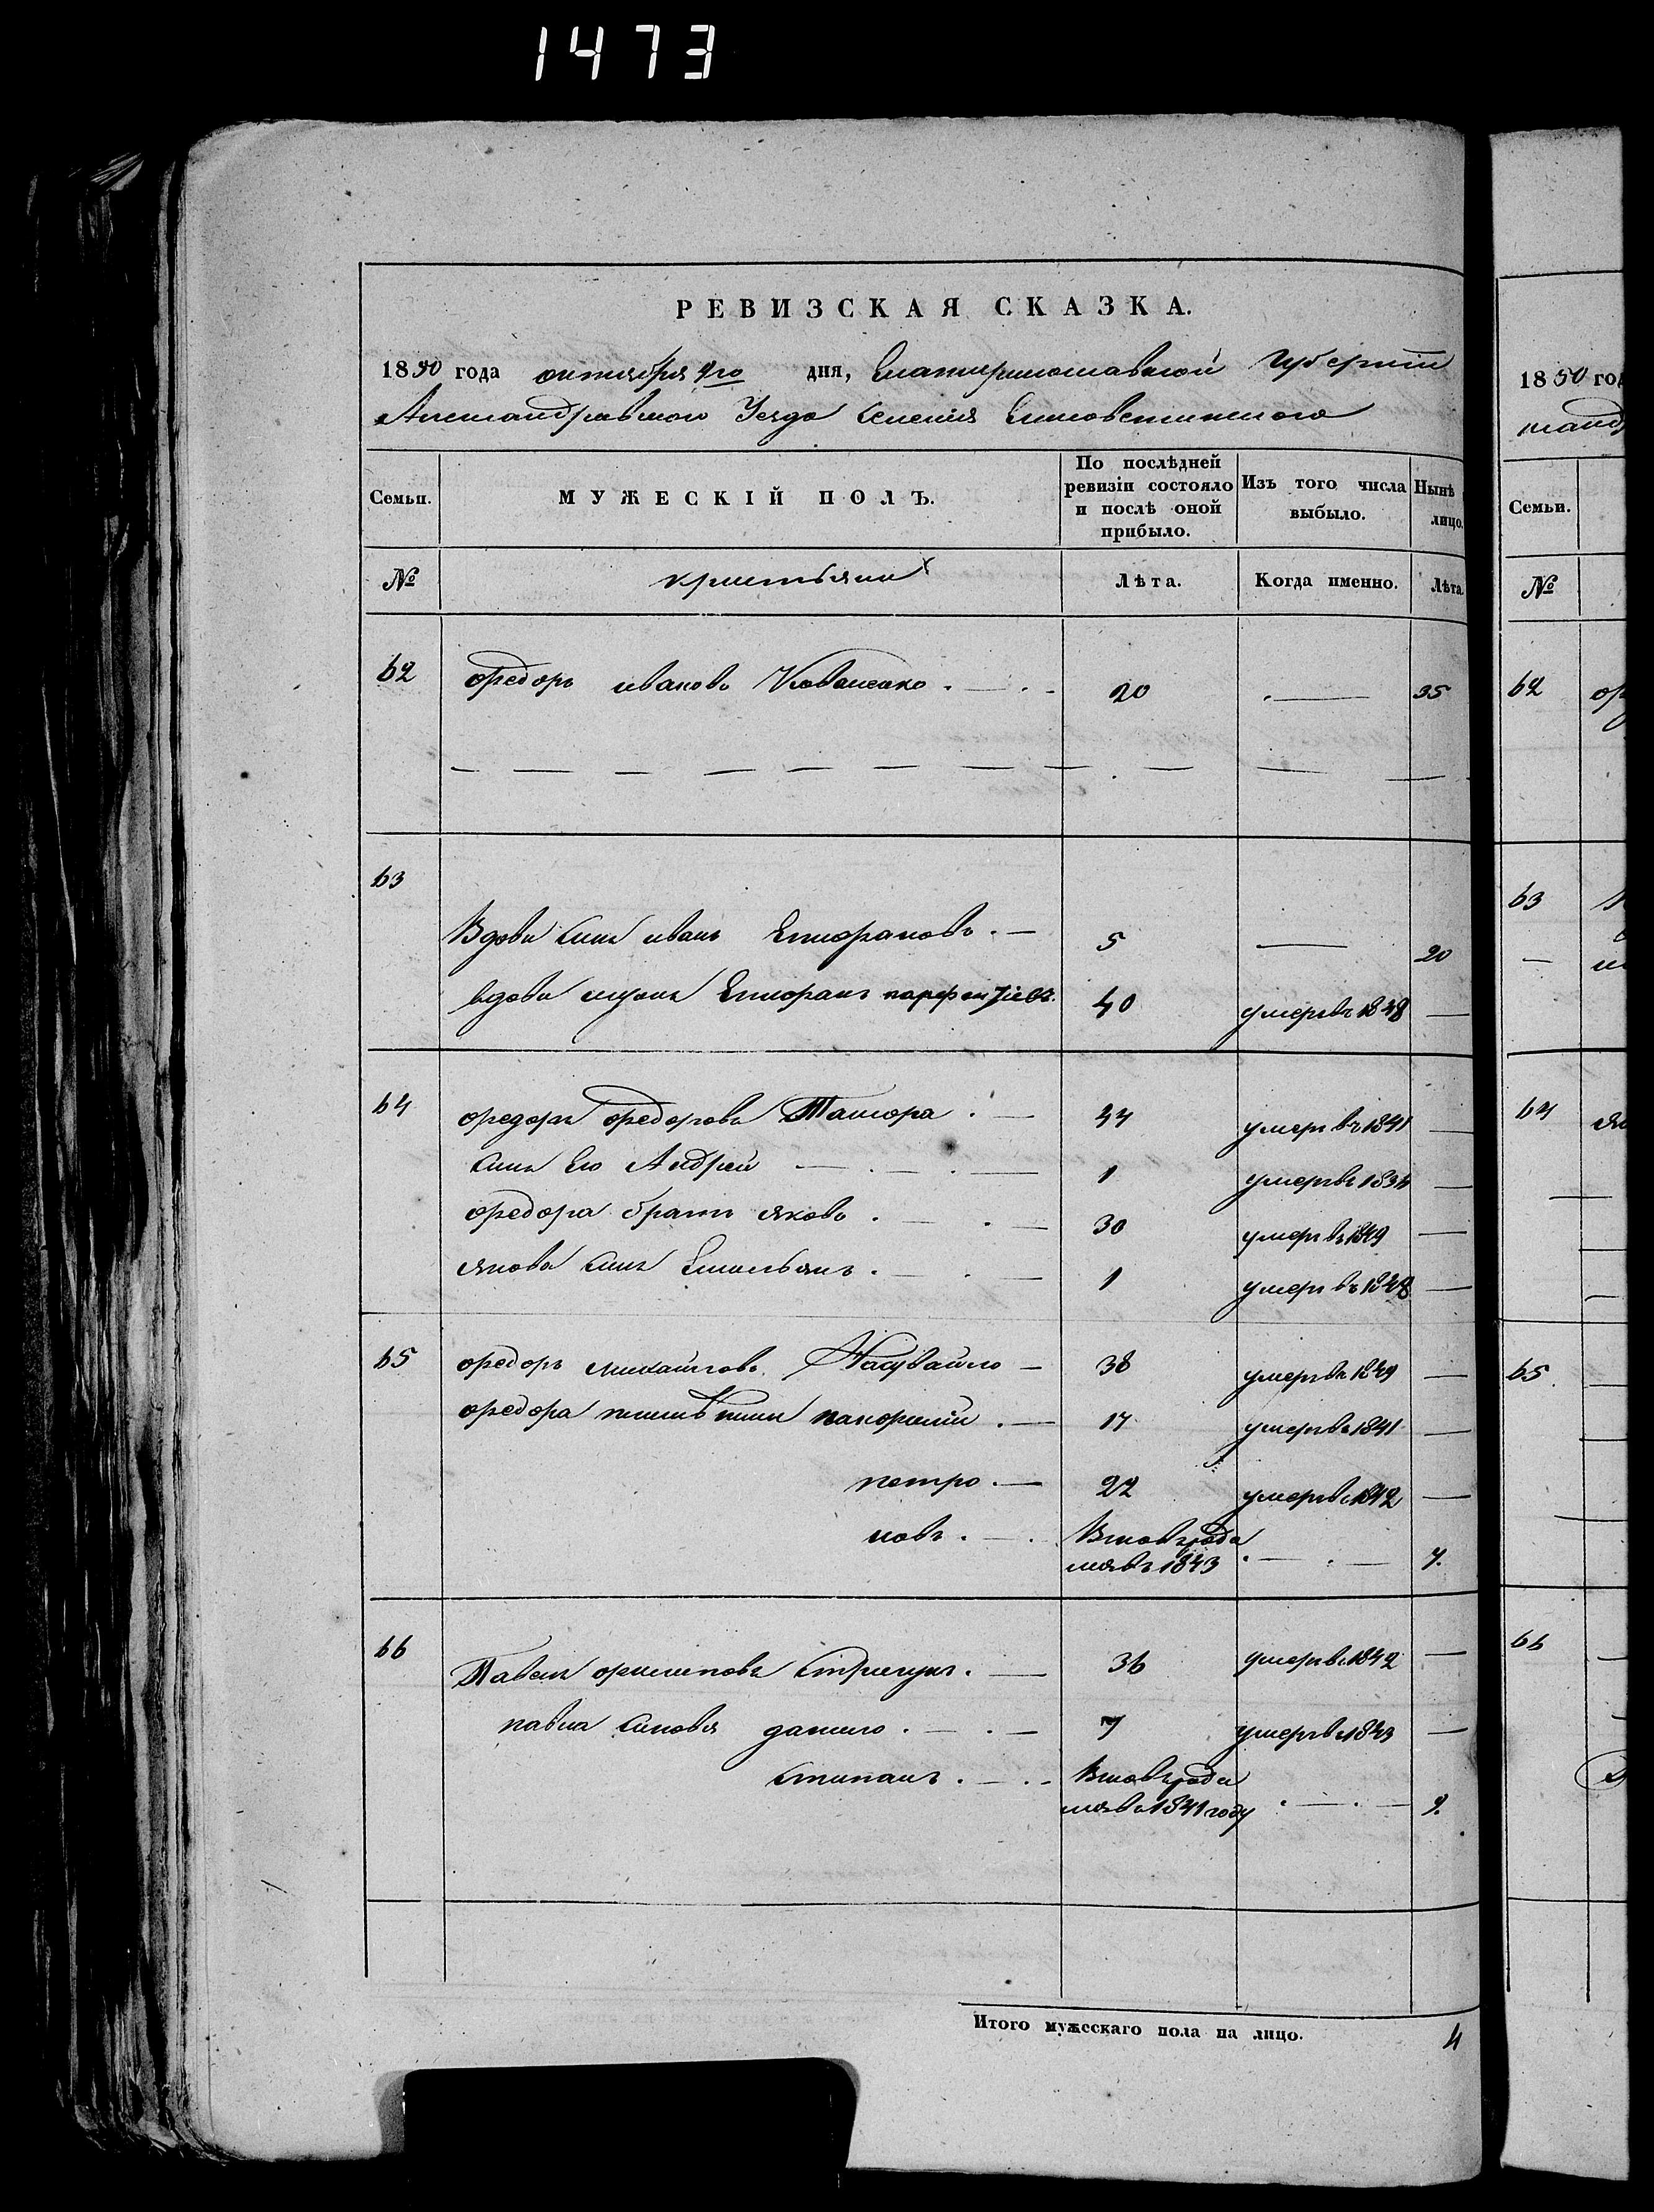 1473
РЕВИЗСКАЯ СКАЗКА.
1850 года октября 4го дня, Екатеринославской Губерніи
Александравского Уезда Селенія
Семьи.
МУЖЕСКІЙ ПОЛЪ.
По послѣдней ревизіи состояло и послѣ оной прибыло.
Изъ того числа выбыло.
Нынѣ лицо.
№ кристьяни Лѣта. Когда именно. Лѣта.
62 Федоръ ивановъ Коваленко 20 — 35
63
Вдови синъ иванъ 5 — 20
вдови Епифранъ парфентіевъ 40 умеръ въ 1848 —
64 федоръ федоровъ 44 умеръ въ 1841 —
синъ Его Андрей 1 умеръ въ 1834 —
федора братъ яковъ 30 умеръ въ 1849 —
якова синъ Емильянъ 1 умеръ въ 1848 —
65 федоръ михайловъ 38 умеръ въ 1849 —
федора 17 умеръ въ 1841 —
петро 22 умеръ въ 1842 —
иовъ Вновь роди
лся въ 1843 7.
66 Павелъ филиповъ Стригунъ 36 умеръ въ 1842 —
павла синовя данило 7 умеръ въ 1843 —
Стипанъ Вновь роди
лся въ 1841 году 9.
Итого мужескаго пола на лицо. 4
1850 год
Семьи.
№
62
63
64
65
66